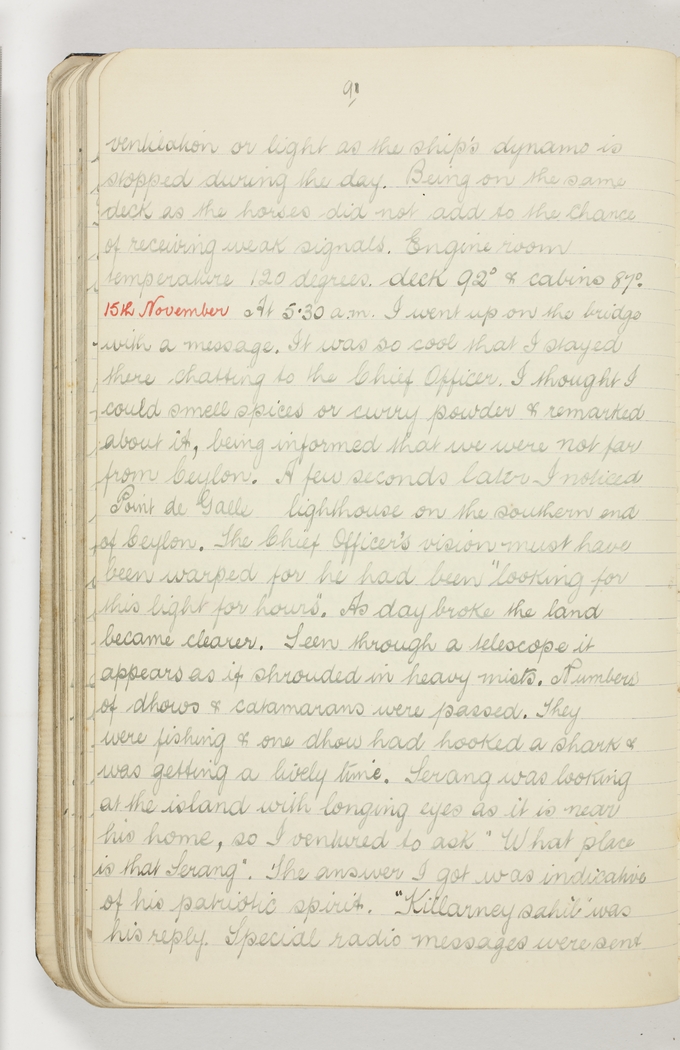 91
ventilation or light as the ship's dynamo is
stopped during the day. Being on the same
deck as the horses did not add to the chance
of receiving weak signals. Engine room
temperature 120 degrees. deck 92° & cabins 87°.
15th November At 5.30 a.m. I went up on the bridge
with a message. It was so cool that I stayed
there chatting to the Chief Officer. I thought I
could smell spices or curry powder & remarked
about it, being informed that we were not far
from Ceylon. A few seconds later I noticed
Point de Galle lighthouse on the southern end
of Ceylon. The Chief Officer's vision must have
been warped for he had been "looking for
this light for hours". As day broke the land
became clearer. Seen through a telescope it
appears as if shrouded in heavy mists. Numbers
of dhows & catamarans were passed. They
were fishing & one dhow had hooked a shark &
was getting a lively time. Serang was looking
at the island with longing eyes as it is near
his home, so I ventured to ask "What place
is that Serang". The answer I got was indicative
of his patriotic spirit. "Killarney sahib" was
his reply. Special radio messages were sent